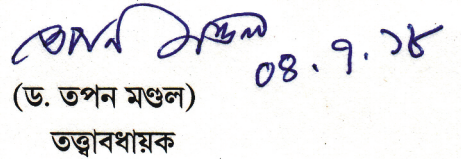 তপন মণ্ডল
০৪.৭.১৮
(ড. তপন মণ্ডল)
তত্ত্বাবধায়ক